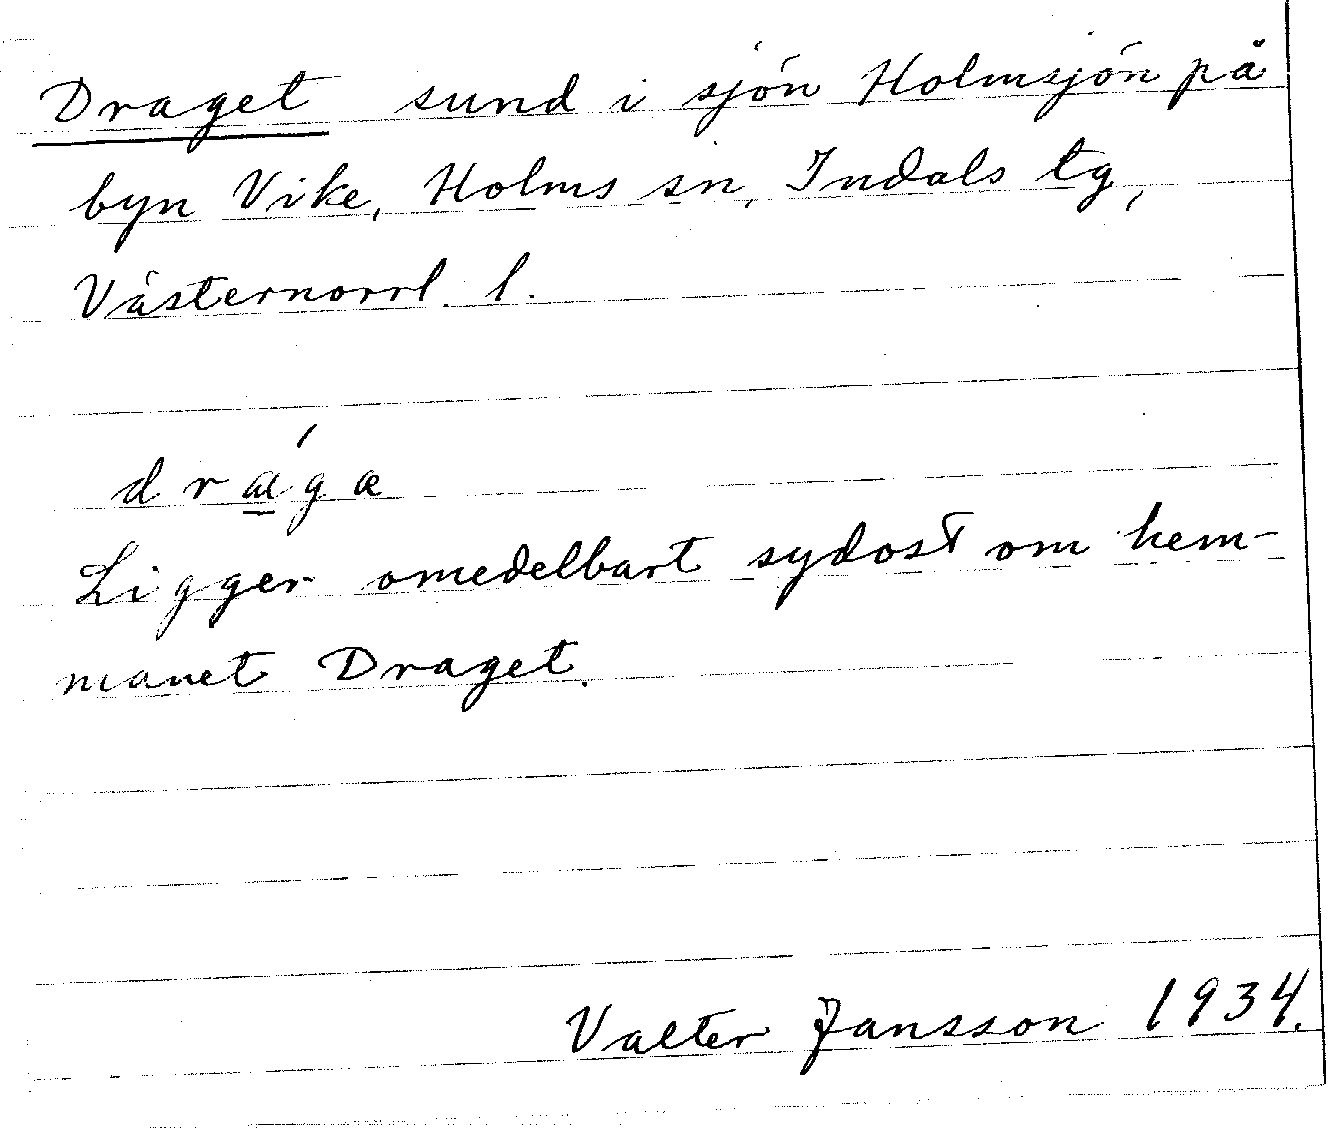 Draget sund i sjön Holmsjön på
byn Vike, Holms sn, Indals tg,
Västernorrl. l.
dra̲´gæ
Ligger omedelbart sydost om hem-
manet Draget.
Valter Jansson 1934.